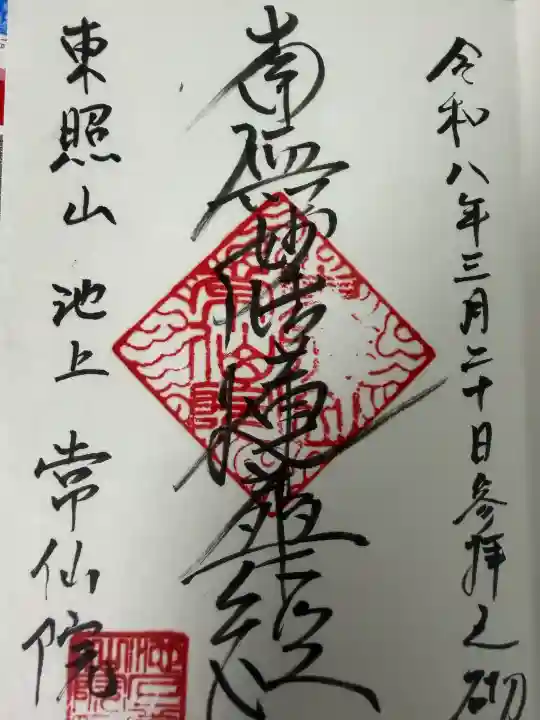 令和八年三月二十日参拝之砌
南無妙法蓮華経
東照山 池上 常仙院